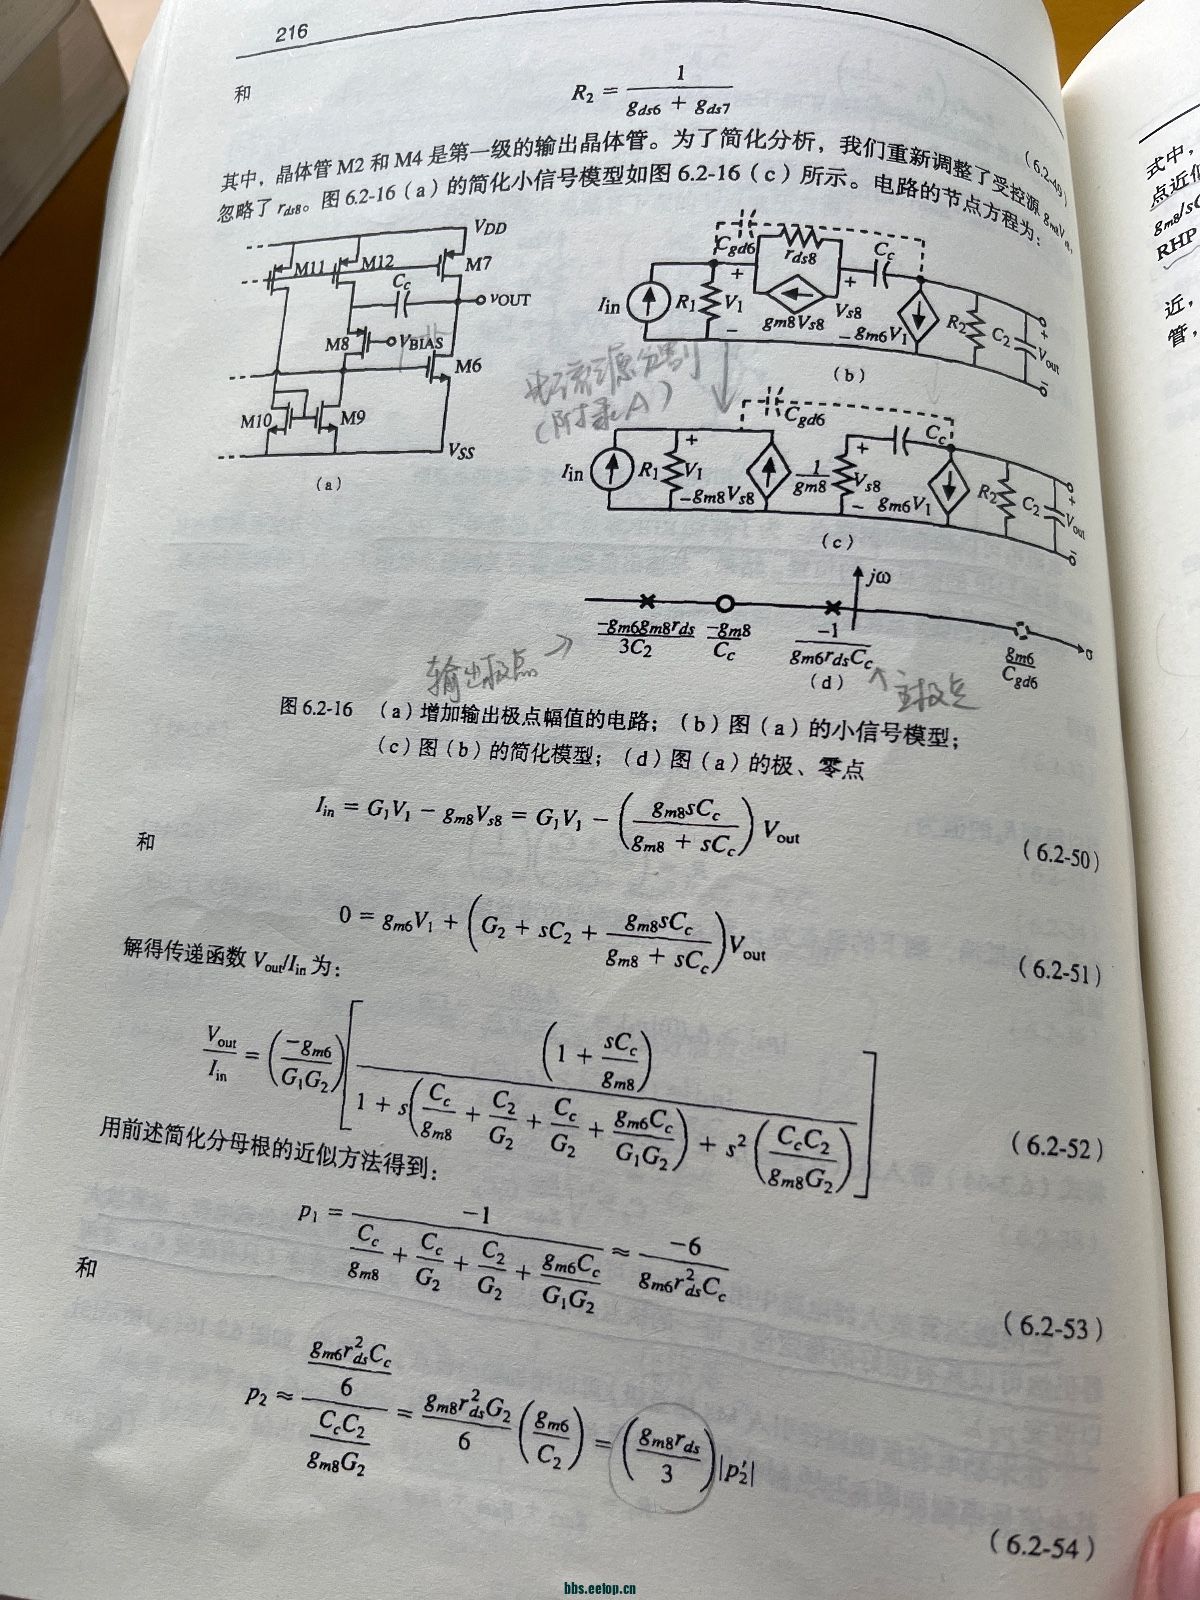 216
和
R₂ = 1/(g_ds6 + g_ds7)
(6.2-49)
其中，晶体管 M2 和 M4 是第一级的输出晶体管。为了简化分析，我们重新调整了受控源 g_m8V_s8，
忽略了 r_ds8。图 6.2-16（a）的简化小信号模型如图 6.2-16（c）所示。电路的节点方程为：
VDD
M11
M12
M7
Cc
vOUT
M8
VBIAS
M6
M10
M9
VSS
（a）
Cgd6
rds8
Cc
Iin
R1
V1
gm8Vs8
Vs8
gm6V1
R2
C2
Vout
（b）
电流源分割
（附录A）
Cgd6
Cc
Iin
R1
V1
gm8Vs8
1/gm8
Vs8
gm6V1
R2
C2
Vout
（c）
jω
σ
-gm6gm8rds/3C2
-gm8/Cc
-1/gm6rdsCc
gm6/Cgd6
（d）
输出极点
主极点
图 6.2-16 （a）增加输出极点幅值的电路；（b）图（a）的小信号模型；
（c）图（b）的简化模型；（d）图（a）的极、零点
I_in = G₁V₁ − g_m8V_s8 = G₁V₁ − (g_m8sC_c/(g_m8 + sC_c)) V_out
(6.2-50)
和
0 = g_m6V₁ + (G₂ + sC₂ + g_m8sC_c/(g_m8 + sC_c)) V_out
(6.2-51)
解得传递函数 V_out/I_in 为：
V_out/I_in = (−g_m6/G₁G₂)[(1 + sC_c/g_m8)/(1 + s(C_c/g_m8 + C₂/G₂ + C_c/G₂ + g_m6C_c/G₁G₂) + s²(C_cC₂/g_m8G₂))]
(6.2-52)
用前述简化分母根的近似方法得到：
p₁ = −1/(C_c/g_m8 + C_c/G₂ + C₂/G₂ + g_m6C_c/G₁G₂) ≈ −6/(g_m6r²_dsC_c)
(6.2-53)
和
p₂ ≈ (g_m6r²_dsC_c/6)/(C_cC₂/g_m8G₂) = (g_m8r²_dsG₂/6)(g_m6/C₂) = (g_m8r_ds/3)|p₂′|
(6.2-54)
式中，
点近似
gm8/sC
RHP
近，
管，
bbs.eetop.cn